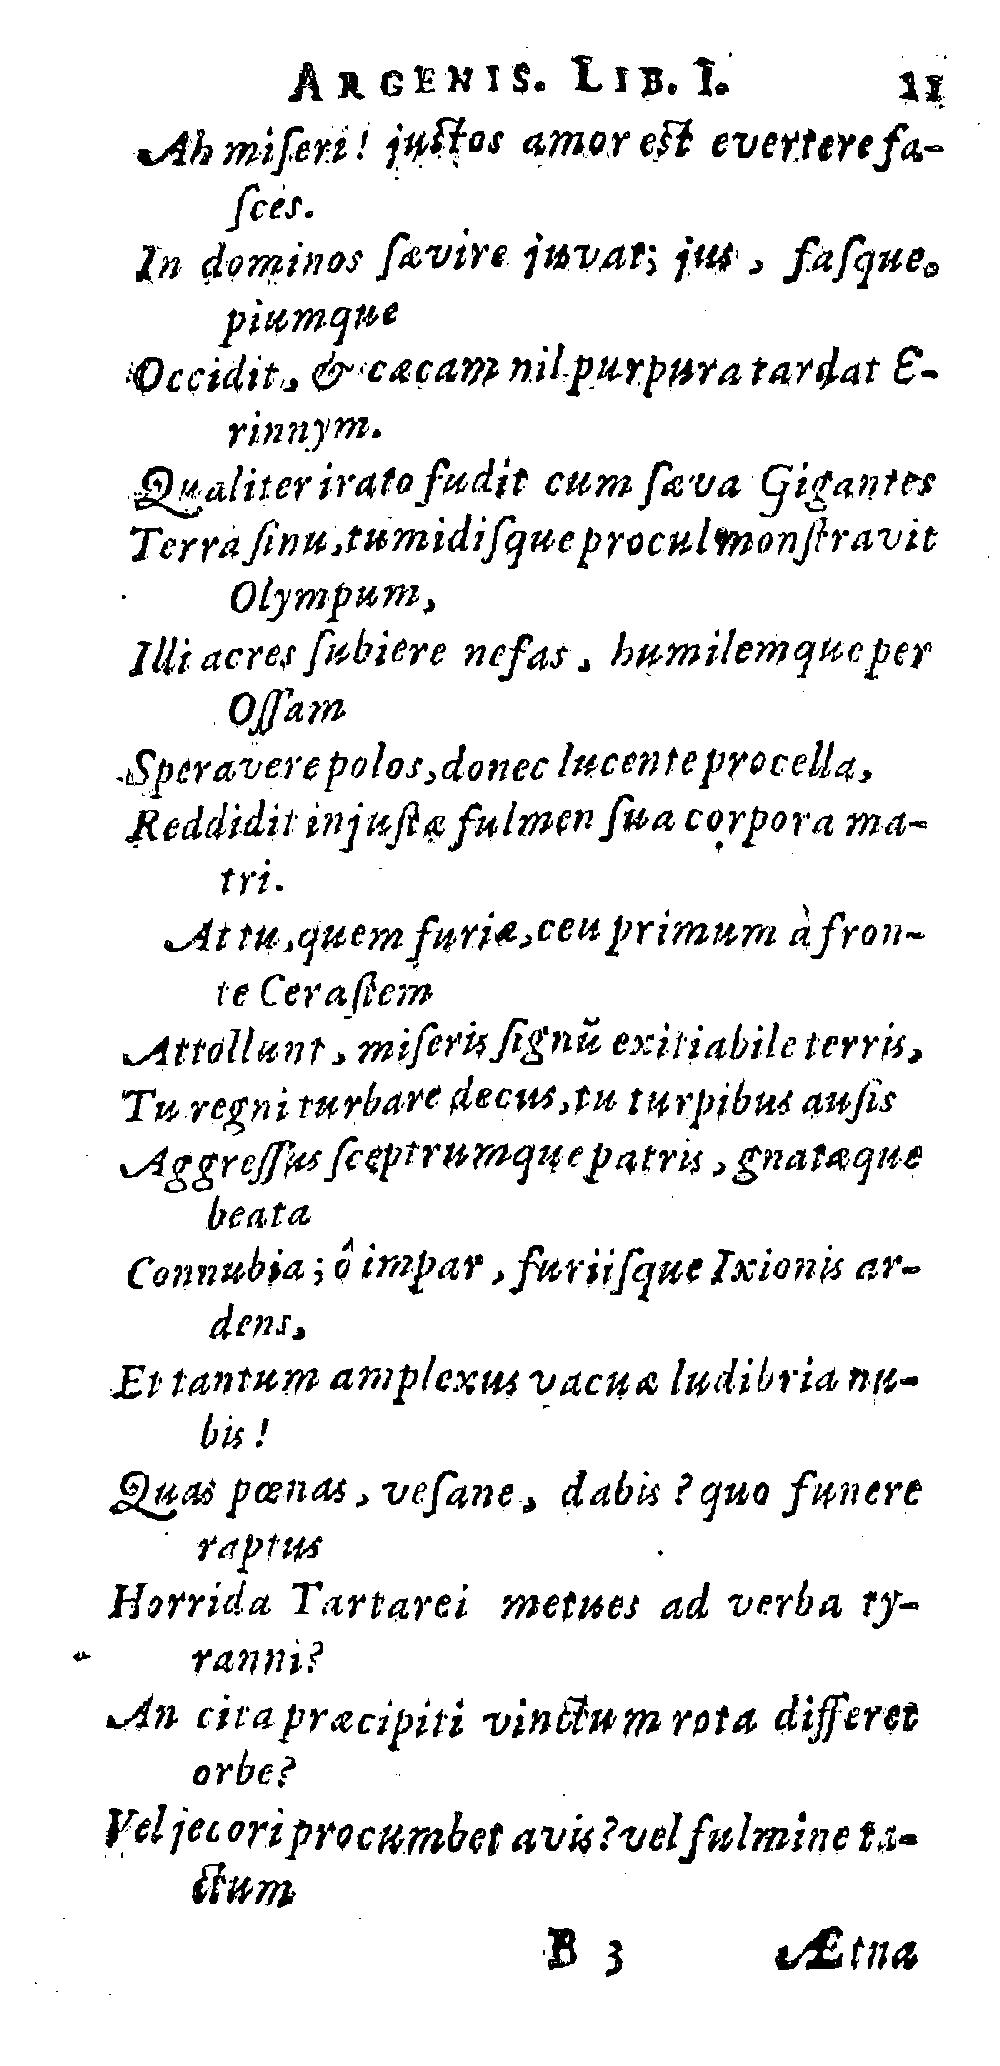 ARGENIS. LIB. I. 11
Ah miseri! justos amor est evertere fa-
sces.
In dominos sævire juvat; jus, fasque.
piumque
Occidit, & cæcam nil purpura tardat E-
rinnym.
Qualiter irato fudit cum sæva Gigantes
Terra sinu, tumidisque procul monstravit
Olympum,
Illi acres subiere nefas, humilemque per
Ossam
Speravere polos, donec lucente procella,
Reddidit injustæ fulmen sua corpora ma-
tri.
At tu, quem furiæ, ceu primum à fron-
te Cerastem
Attollunt, miseris signũ exitiabile terris,
Tu regni turbare decus, tu turpibus ausis
Aggressus sceptrumque patris, gnatæque
beata
Connubia; ô impar, furiisque Ixionis ar-
dens,
Et tantum amplexus vacuæ ludibria nu-
bis!
Quas pœnas, vesane, dabis? quo funere
raptus
Horrida Tartarei metues ad verba ty-
ranni?
An cita præcipiti vinctum rota differet
orbe?
Vel jecori procumbet avis? vel fulmine ta-
ctum
B 3 Ætna